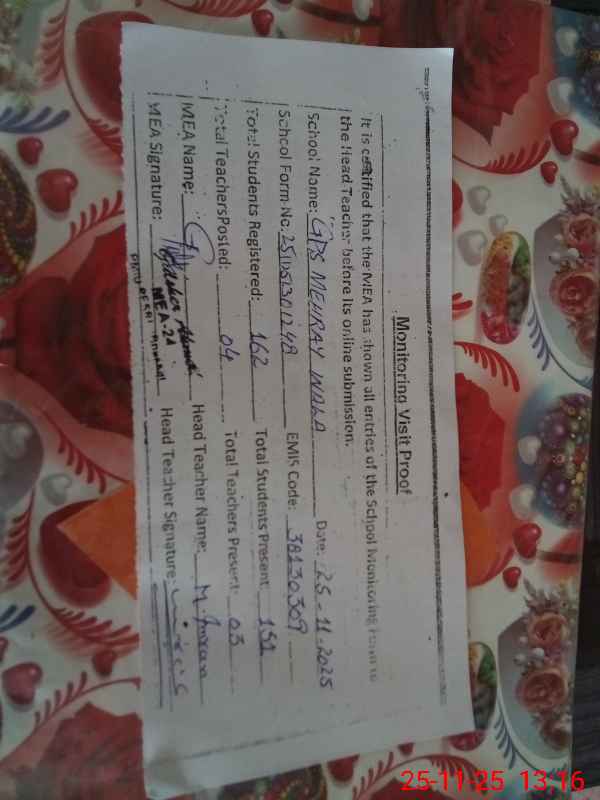 Monitoring Visit Proof
It is certified that the MEA has shown all entries of the School Monitoring Form to
the Head Teacher before its online submission.
School Name: GPS MEHRAY WALA Date: 25-11-2025
School Form No. EMIS Code: 38130309
Total Students Registered: 162 Total Students Present: 151
Total Teachers Posted: 04 Total Teachers Present: 03
MEA Name: Head Teacher Name: M. Imran
MEA Signature: Head Teacher Signature:
MEA-24
25-11-25 13:16